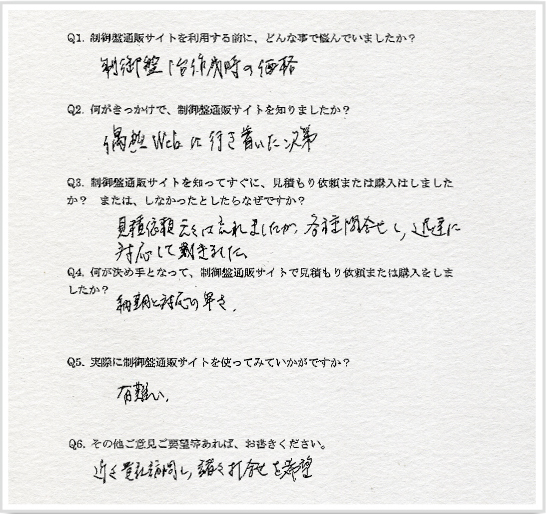 Q1. 制御盤通販サイトを利用する前に、どんな事で悩んでいましたか？
制御盤1台作成時の価格
Q2. 何がきっかけで、制御盤通販サイトを知りましたか？
偶然Webに行き着いた次第
Q3. 制御盤通販サイトを知ってすぐに、見積もり依頼または購入はしました
か？ または、しなかったとしたらなぜですか？
見積依頼 忘れましたが、各種問合せし、迅速に
対応して頂きました。
Q4. 何が決め手となって、制御盤通販サイトで見積もり依頼または購入をしま
したか？
納期と対応の早さ。
Q5. 実際に制御盤通販サイトを使ってみていかがですか？
有難い。
Q6. その他ご意見ご要望等あれば、お書きください。
近々貴社訪問し、諸々打合せを希望